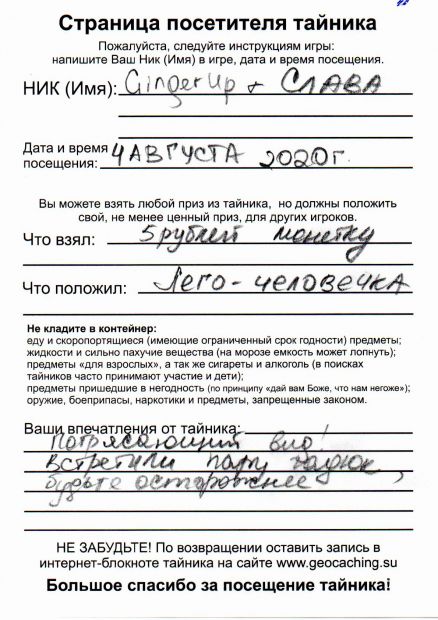 Страница посетителя тайника
Пожалуйста, следуйте инструкциям игры:
напишите Ваш Ник (Имя) в игре, дата и время посещения.
НИК (Имя): GingerUp + СЛАВА
Дата и время
посещения: 4 АВГУСТА 2020г.
Вы можете взять любой приз из тайника, но должны положить
свой, не менее ценный приз, для других игроков.
Что взял: 5 рублей монетку
Что положил: Лего-человечка
Не кладите в контейнер:
еду и скоропортящиеся (имеющие ограниченный срок годности) предметы;
жидкости и сильно пахучие вещества (на морозе емкость может лопнуть);
предметы «для взрослых», а так же сигареты и алкоголь (в поисках
тайников часто принимают участие и дети);
предметы пришедшие в негодность (по принципу «дай вам Боже, что нам негоже»);
оружие, боеприпасы, наркотики и предметы, запрещенные законом.
Ваши впечатления от тайника:
Потрясающий вид!
Встретили пару гадюк,
будьте осторожнее
НЕ ЗАБУДЬТЕ! По возвращении оставить запись в
интернет-блокноте тайника на сайте www.geocaching.su
Большое спасибо за посещение тайника!